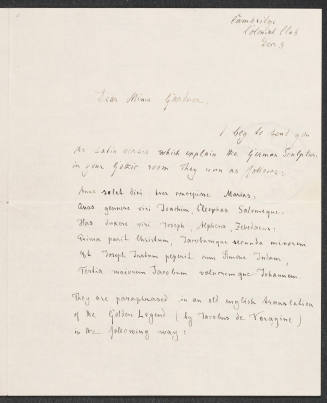 Cambridge
Colonial Club
Dec 3
Dear Miss Gardner.
I beg to send you
the Latin verses which explain the German Sculpture
in your Gothic room They run as follows:
Anna solet dici tres concepisse Marias,
Quas genuere viri Joachim, Cleophas Salomeque.
Has duxere viri Joseph, Alpheus, Zebedaeus.
Prima parit Christum, Jacobumque secunda minorem
Et Joseph Justum peperit cum Simone Judam,
Tertia maiorem Jacobum volucremque Johannem.
They are paraphrased in an old english translation
of the Golden Legend (by Jacobus de Voragine)
in the following way: